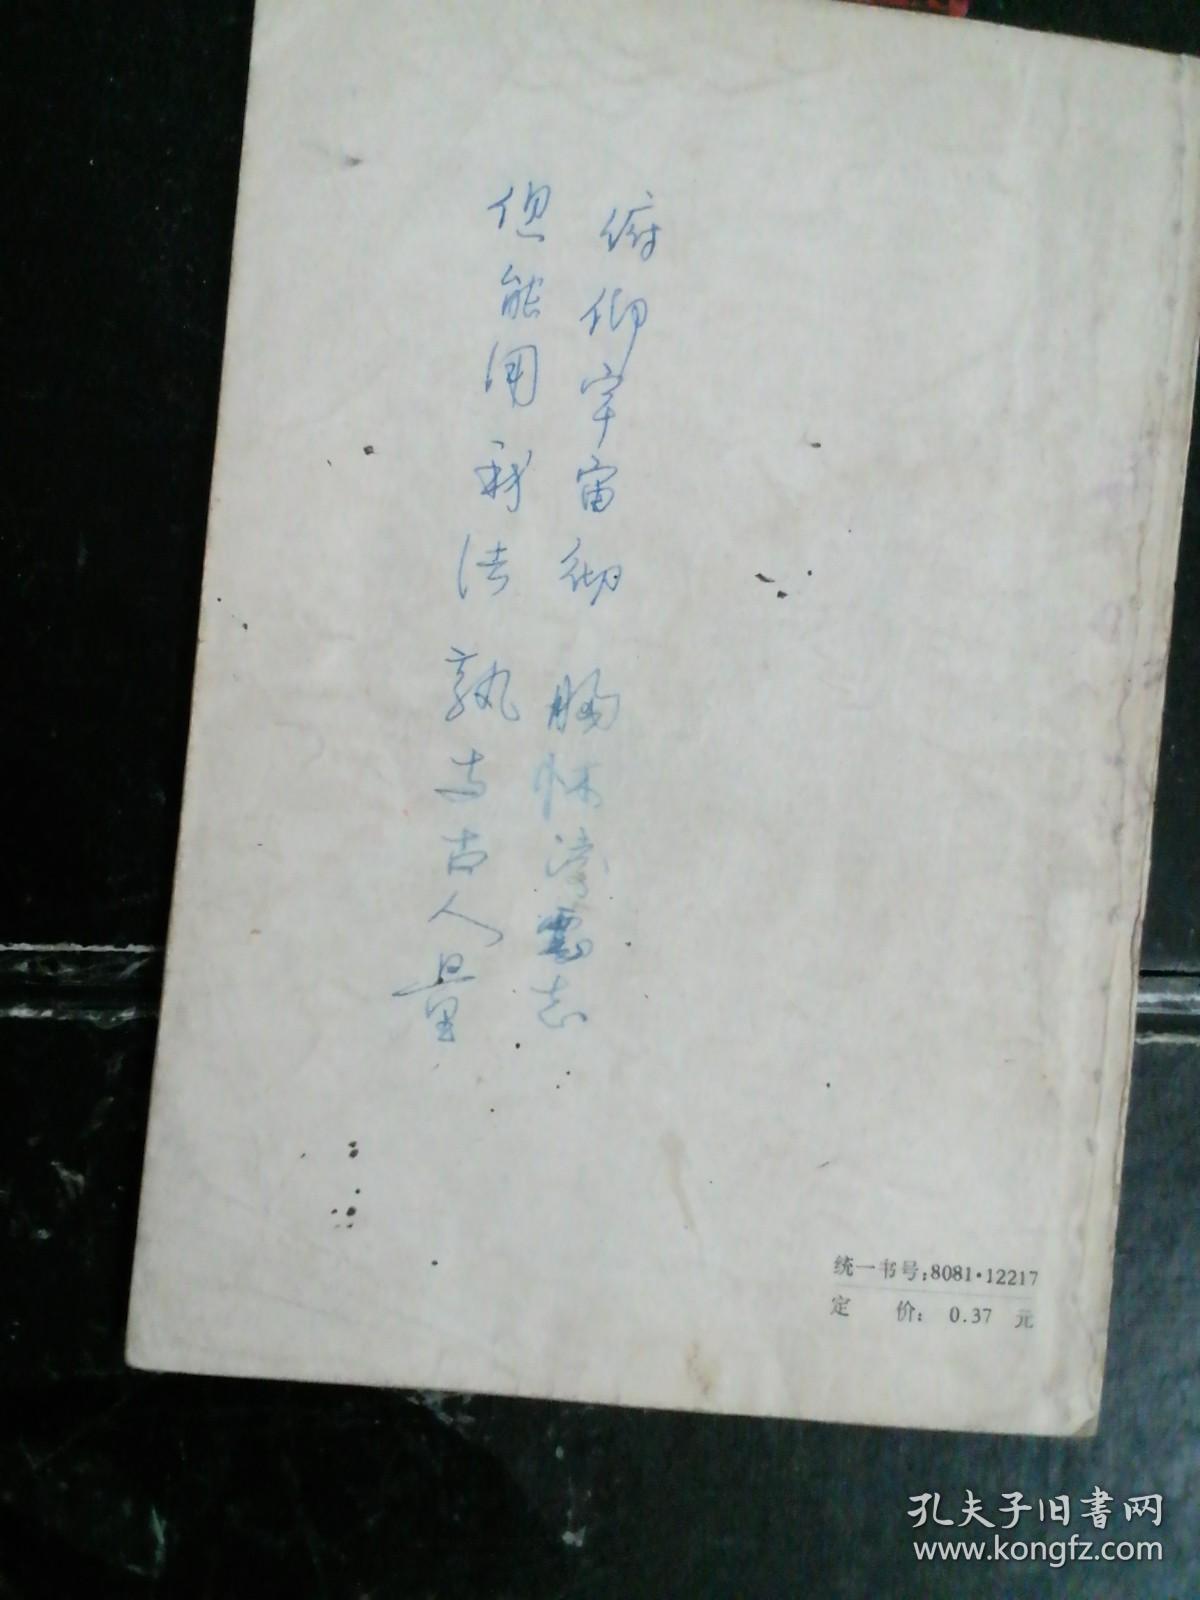 俯仰宇宙彻 胸怀凌雲志
但能用我法 孰与古人量
统一书号:8081·12217
定 价: 0.37 元
孔夫子旧书网
www.kongfz.com